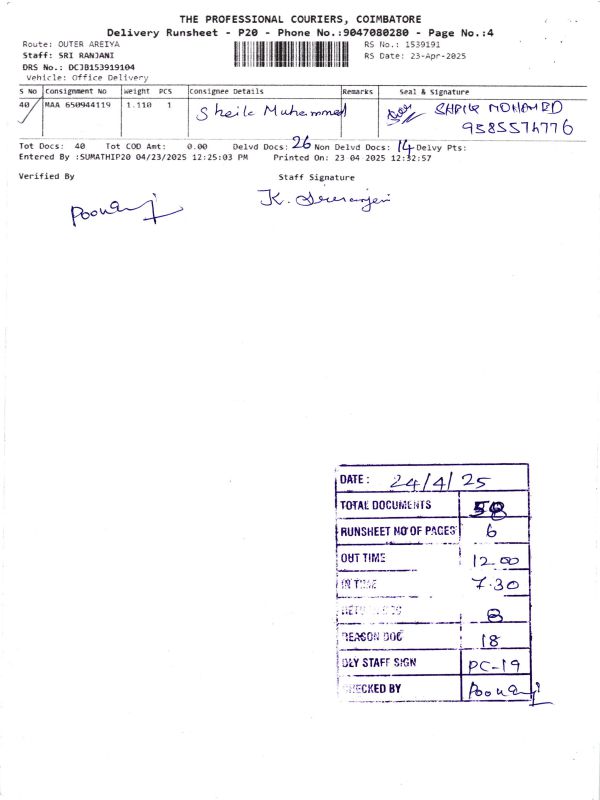 THE PROFESSIONAL COURIERS, COIMBATORE
Delivery Runsheet - P20 - Phone No.:9047080280 - Page No.:4
Route: OUTER AREIYA RS No.: 1539191
Staff: SRI RANJANI RS Date: 23-Apr-2025
DRS No.: DCJB153919104
Vehicle: Office Delivery
S No Consignment No Weight PCS Consignee Details Remarks Seal & Signature
40 MAA 650944119 1.110 1 Sheik Muhammed SHAIK MOHAMED
9585574776
Tot Docs: 40 Tot COD Amt: 0.00 Delvd Docs: 26 Non Delvd Docs: 14 Delvy Pts:
Entered By :SUMATHIP20 04/23/2025 12:25:03 PM Printed On: 23 04 2025 12:32:57
Verified By Staff Signature
DATE : 24/4/25
TOTAL DOCUMENTS 58
RUNSHEET NO OF PAGES 6
OUT TIME 12.00
IN TIME 7.30
8
REASON DOC 18
DLY STAFF SIGN PC-19
CHECKED BY